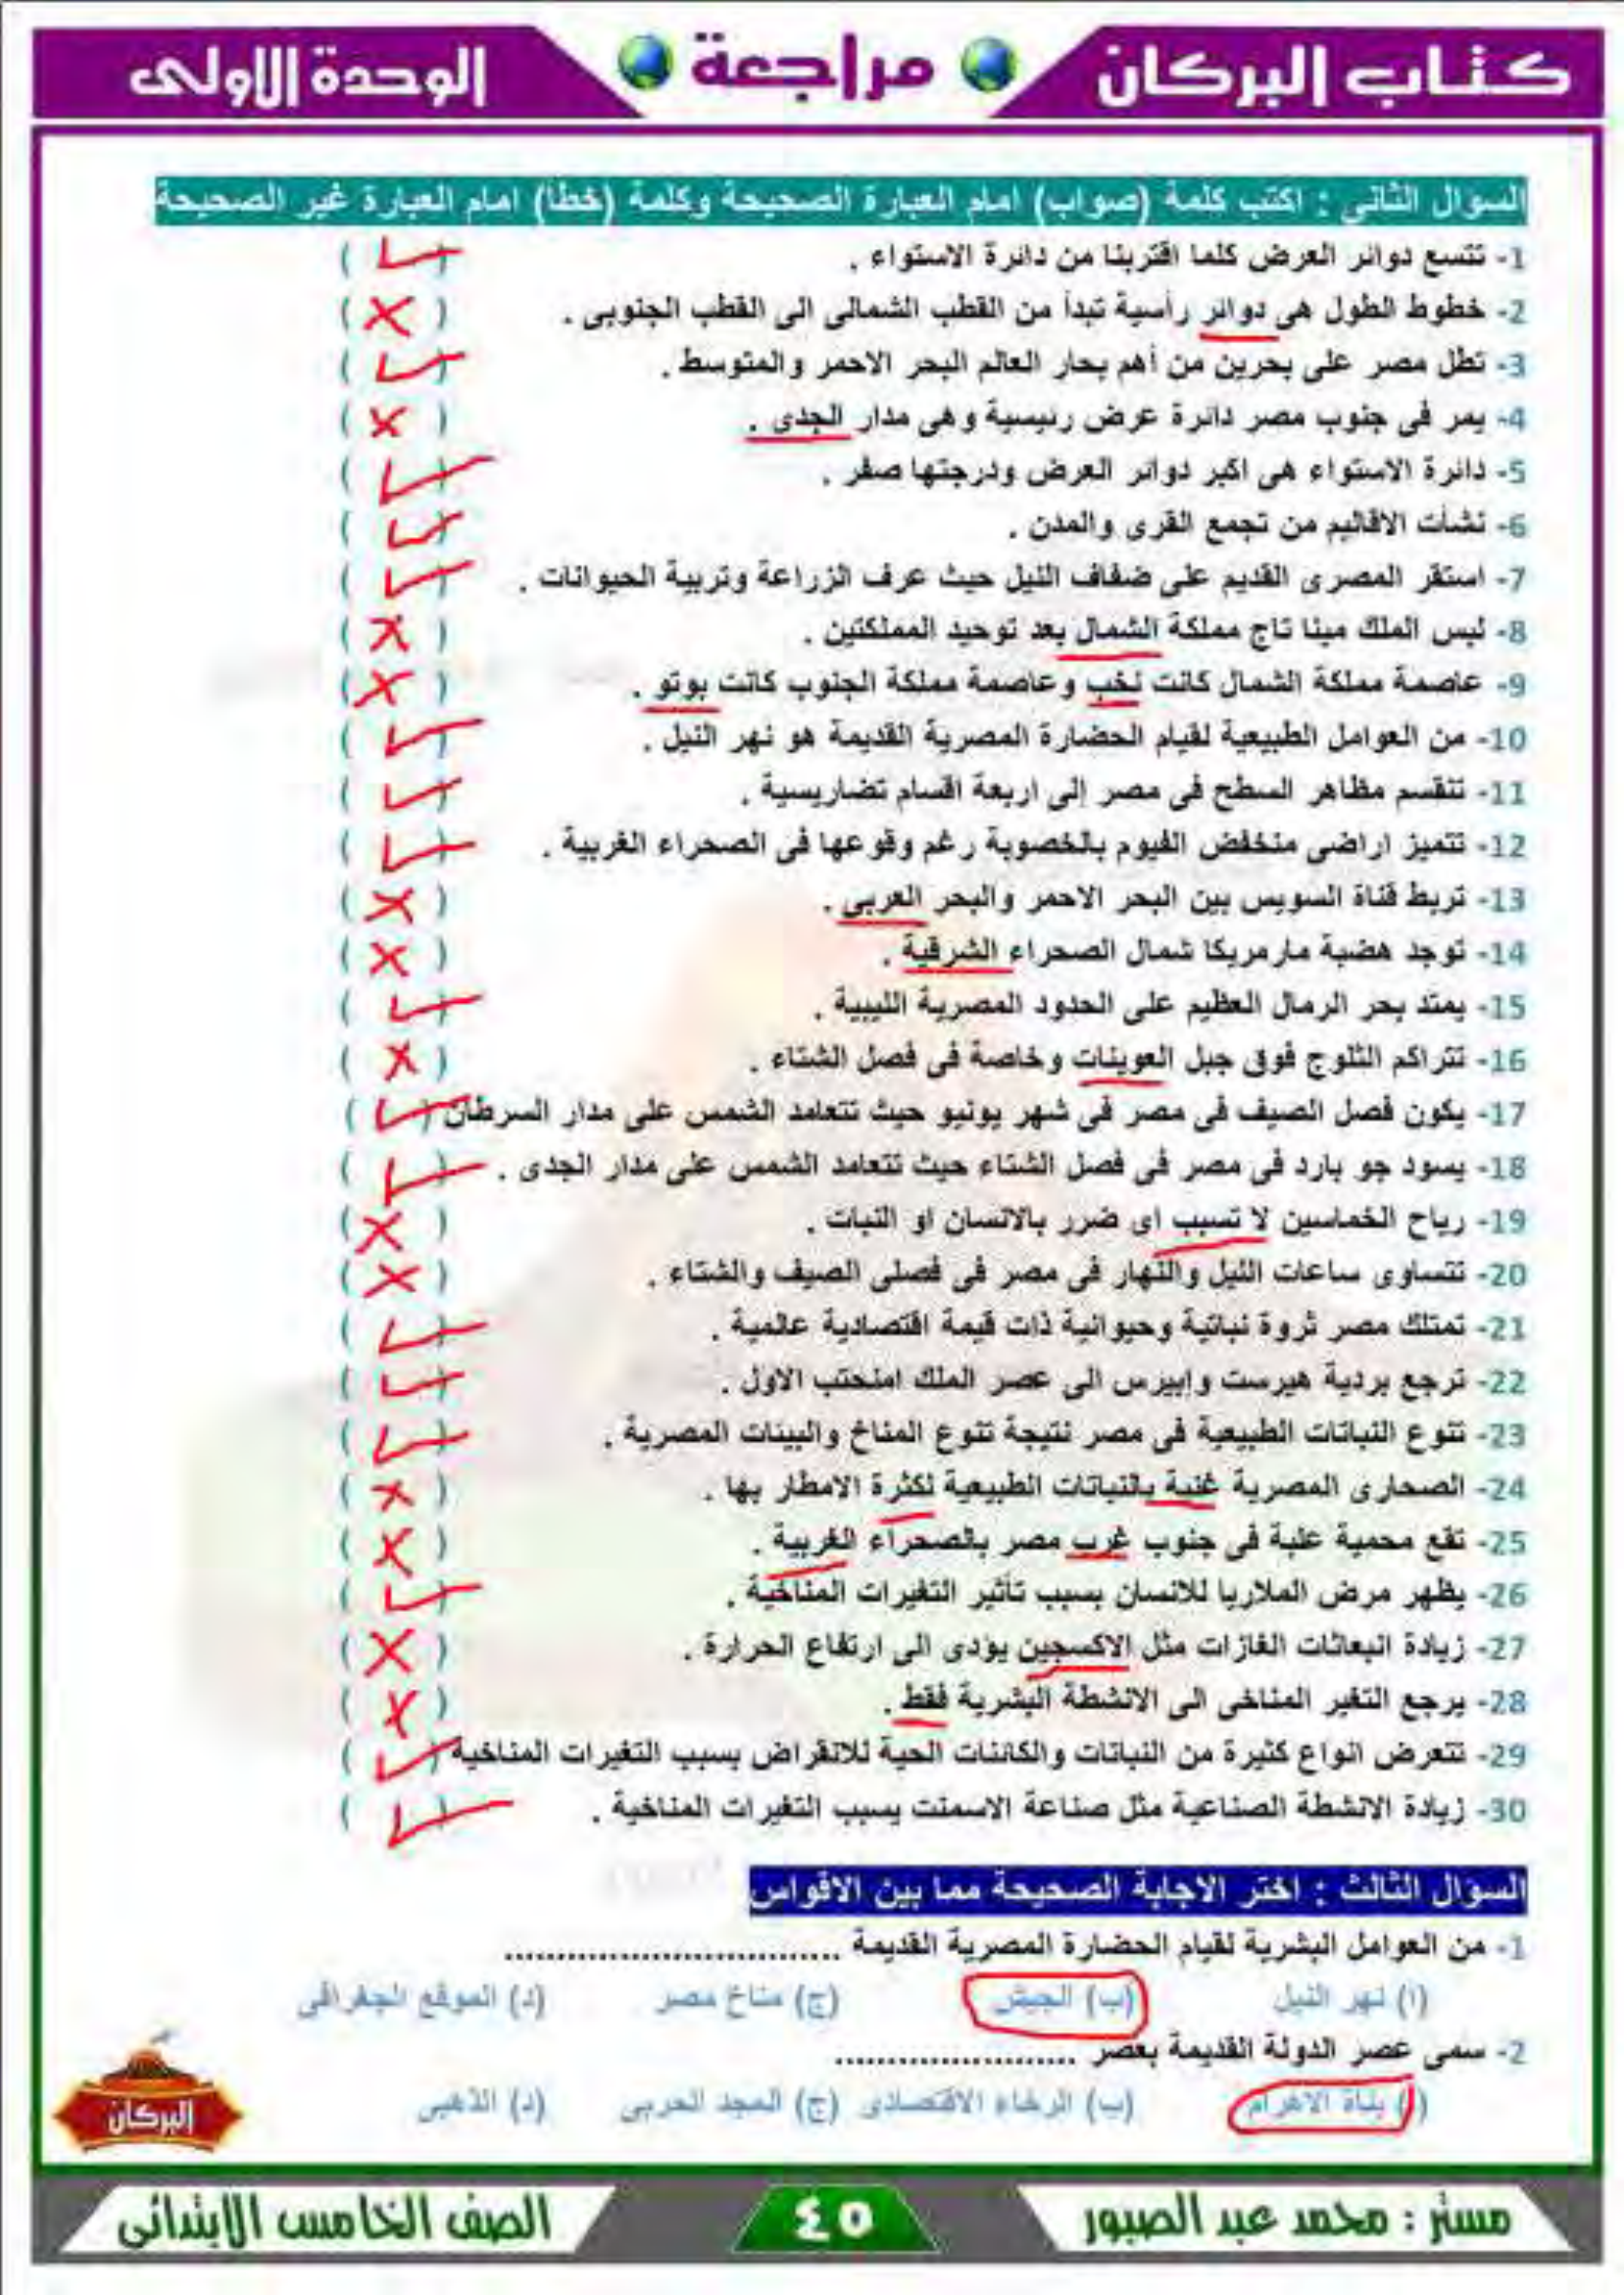 كتاب البركان
مراجعة
الوحدة الاولى
السوال الثانى : اكتب كلمة (صواب) امام العبارة الصحيحة وكلمة (خطأ) امام العبارة غير الصحيحة
1- تتسع دوائر العرض كلما اقتربنا من دائرة الاستواء . ( ✓ )
2- خطوط الطول هى دوائر رأسية تبدأ من القطب الشمالى الى القطب الجنوبى . ( ✗ )
3- تطل مصر على بحرين من أهم بحار العالم البحر الاحمر والمتوسط . ( ✓ )
4- يمر فى جنوب مصر دائرة عرض رئيسية وهى مدار الجدى . ( ✗ )
5- دائرة الاستواء هى اكبر دوائر العرض ودرجتها صفر . ( ✓ )
6- نشأت الاقاليم من تجمع القرى والمدن . ( ✓ )
7- استقر المصرى القديم على ضفاف النيل حيث عرف الزراعة وتربية الحيوانات . ( ✓ )
8- لبس الملك مينا تاج مملكة الشمال بعد توحيد المملكتين . ( ✗ )
9- عاصمة مملكة الشمال كانت نخب وعاصمة مملكة الجنوب كانت بوتو . ( ✗ )
10- من العوامل الطبيعية لقيام الحضارة المصرية القديمة هو نهر النيل . ( ✓ )
11- تنقسم مظاهر السطح فى مصر إلى اربعة اقسام تضاريسية . ( ✓ )
12- تتميز اراضى منخفض الفيوم بالخصوبة رغم وقوعها فى الصحراء الغربية . ( ✓ )
13- تربط قناة السويس بين البحر الاحمر والبحر العربى . ( ✗ )
14- توجد هضبة مارمريكا شمال الصحراء الشرقية . ( ✗ )
15- يمتد بحر الرمال العظيم على الحدود المصرية الليبية . ( ✓ )
16- تتراكم الثلوج فوق جبل العوينات وخاصة فى فصل الشتاء . ( ✗ )
17- يكون فصل الصيف فى مصر فى شهر يونيو حيث تتعامد الشمس على مدار السرطان ( ✓ )
18- يسود جو بارد فى مصر فى فصل الشتاء حيث تتعامد الشمس على مدار الجدى . ( ✓ )
19- رياح الخماسين لا تسبب اى ضرر بالانسان او النبات . ( ✗ )
20- تتساوى ساعات الليل والنهار فى مصر فى فصلى الصيف والشتاء . ( ✗ )
21- تمتلك مصر ثروة نباتية وحيوانية ذات قيمة اقتصادية عالمية . ( ✓ )
22- ترجع بردية هيرست وإبيرس الى عصر الملك امنحتب الاول . ( ✓ )
23- تتنوع النباتات الطبيعية فى مصر نتيجة تنوع المناخ والبيئات المصرية . ( ✓ )
24- الصحارى المصرية غنية بالنباتات الطبيعية لكثرة الامطار بها . ( ✗ )
25- تقع محمية علبة فى جنوب غرب مصر بالصحراء الغربية . ( ✗ )
26- يظهر مرض الملاريا للانسان بسبب تأثير التغيرات المناخية . ( ✓ )
27- زيادة انبعاثات الغازات مثل الاكسجين يؤدى الى ارتفاع الحرارة . ( ✗ )
28- يرجع التغير المناخى الى الانشطة البشرية فقط . ( ✗ )
29- تتعرض انواع كثيرة من النباتات والكائنات الحية للانقراض بسبب التغيرات المناخية ( ✓ )
30- زيادة الانشطة الصناعية مثل صناعة الاسمنت يسبب التغيرات المناخية . ( ✓ )
السؤال الثالث : اختر الاجابة الصحيحة مما بين الاقواس
1- من العوامل البشرية لقيام الحضارة المصرية القديمة ..............................
(ا) نهر النيل (ب) الجيش (ج) مناخ مصر (د) الموقع الجغرافى
2- سمى عصر الدولة القديمة بعصر ......................
(ا) بناة الاهرام (ب) الرخاء الاقتصادى (ج) المجد الحربى (د) الذهبى
البركان
مستر : محمد عبد الصبور
٤٥
الصف الخامس الابتدائى